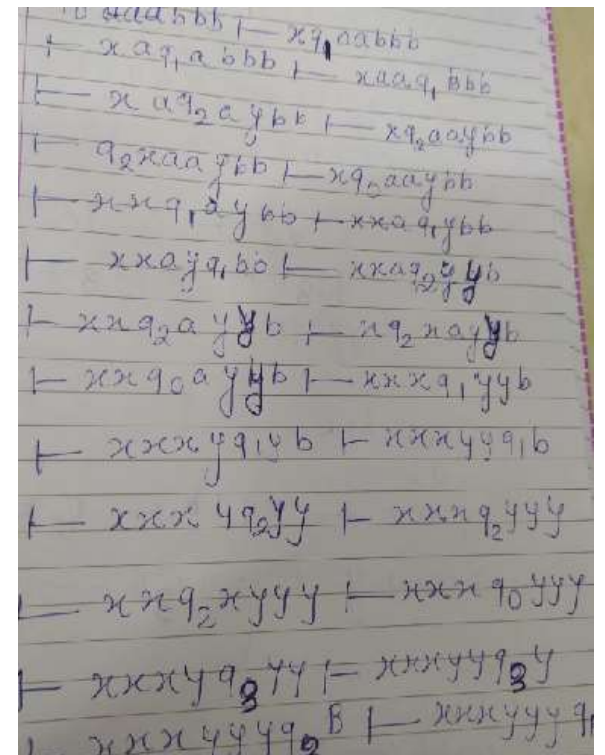 q0 aaabbb ⊢ xq₁aabbb
⊢ xaq₁abbb ⊢ xaaq₁bbb
⊢ xaq₂aybb ⊢ xq₂aaybb
⊢ q₂xaaybb ⊢ xq₀aaybb
⊢ xxq₁aybb ⊢ xxaq₁ybb
⊢ xxayq₁bb ⊢ xxaq₂yyb
⊢ xxq₂ayyb ⊢ xq₂xayyb
⊢ xxq₀ayyb ⊢ xxxq₁yyb
⊢ xxxyq₁yb ⊢ xxxyyq₁b
⊢ xxxyq₂yy ⊢ xxxq₂yyy
⊢ xxq₂xyyy ⊢ xxxq₀yyy
⊢ xxxyq₃yy ⊢ xxxyyq₃y
⊢ xxxyyyq₃B ⊢ xxxyyy